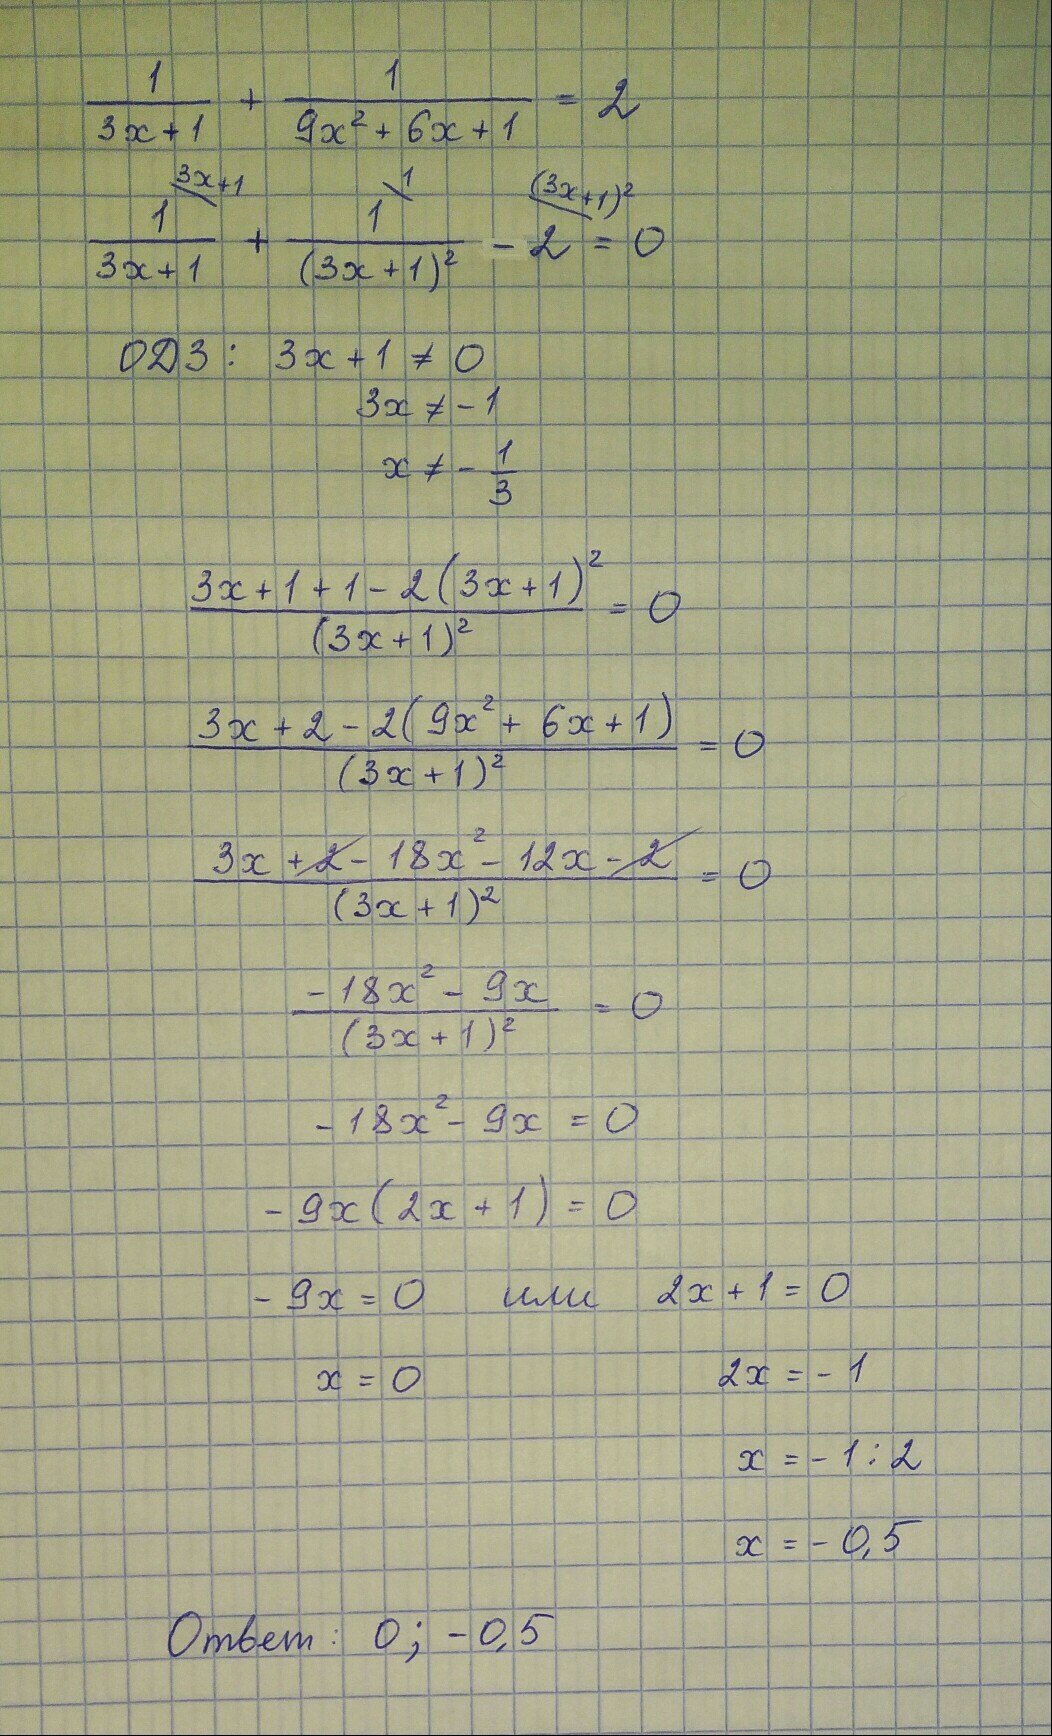 1/(3x+1) + 1/(9x² + 6x + 1) = 2
1/(3x+1) \3x+1 + 1/(3x+1)² \1 - 2 \(3x+1)² = 0
ОДЗ: 3x+1 ≠ 0
3x ≠ -1
x ≠ - 1/3
(3x+1+1-2(3x+1)²)/(3x+1)² = 0
(3x+2-2(9x²+6x+1))/(3x+1)² = 0
(3x+2-18x²-12x-2)/(3x+1)² = 0
(-18x²-9x)/(3x+1)² = 0
-18x²-9x = 0
-9x(2x+1) = 0
-9x = 0 или 2x+1 = 0
x = 0 2x = -1
x = -1:2
x = -0,5
Ответ: 0; -0,5